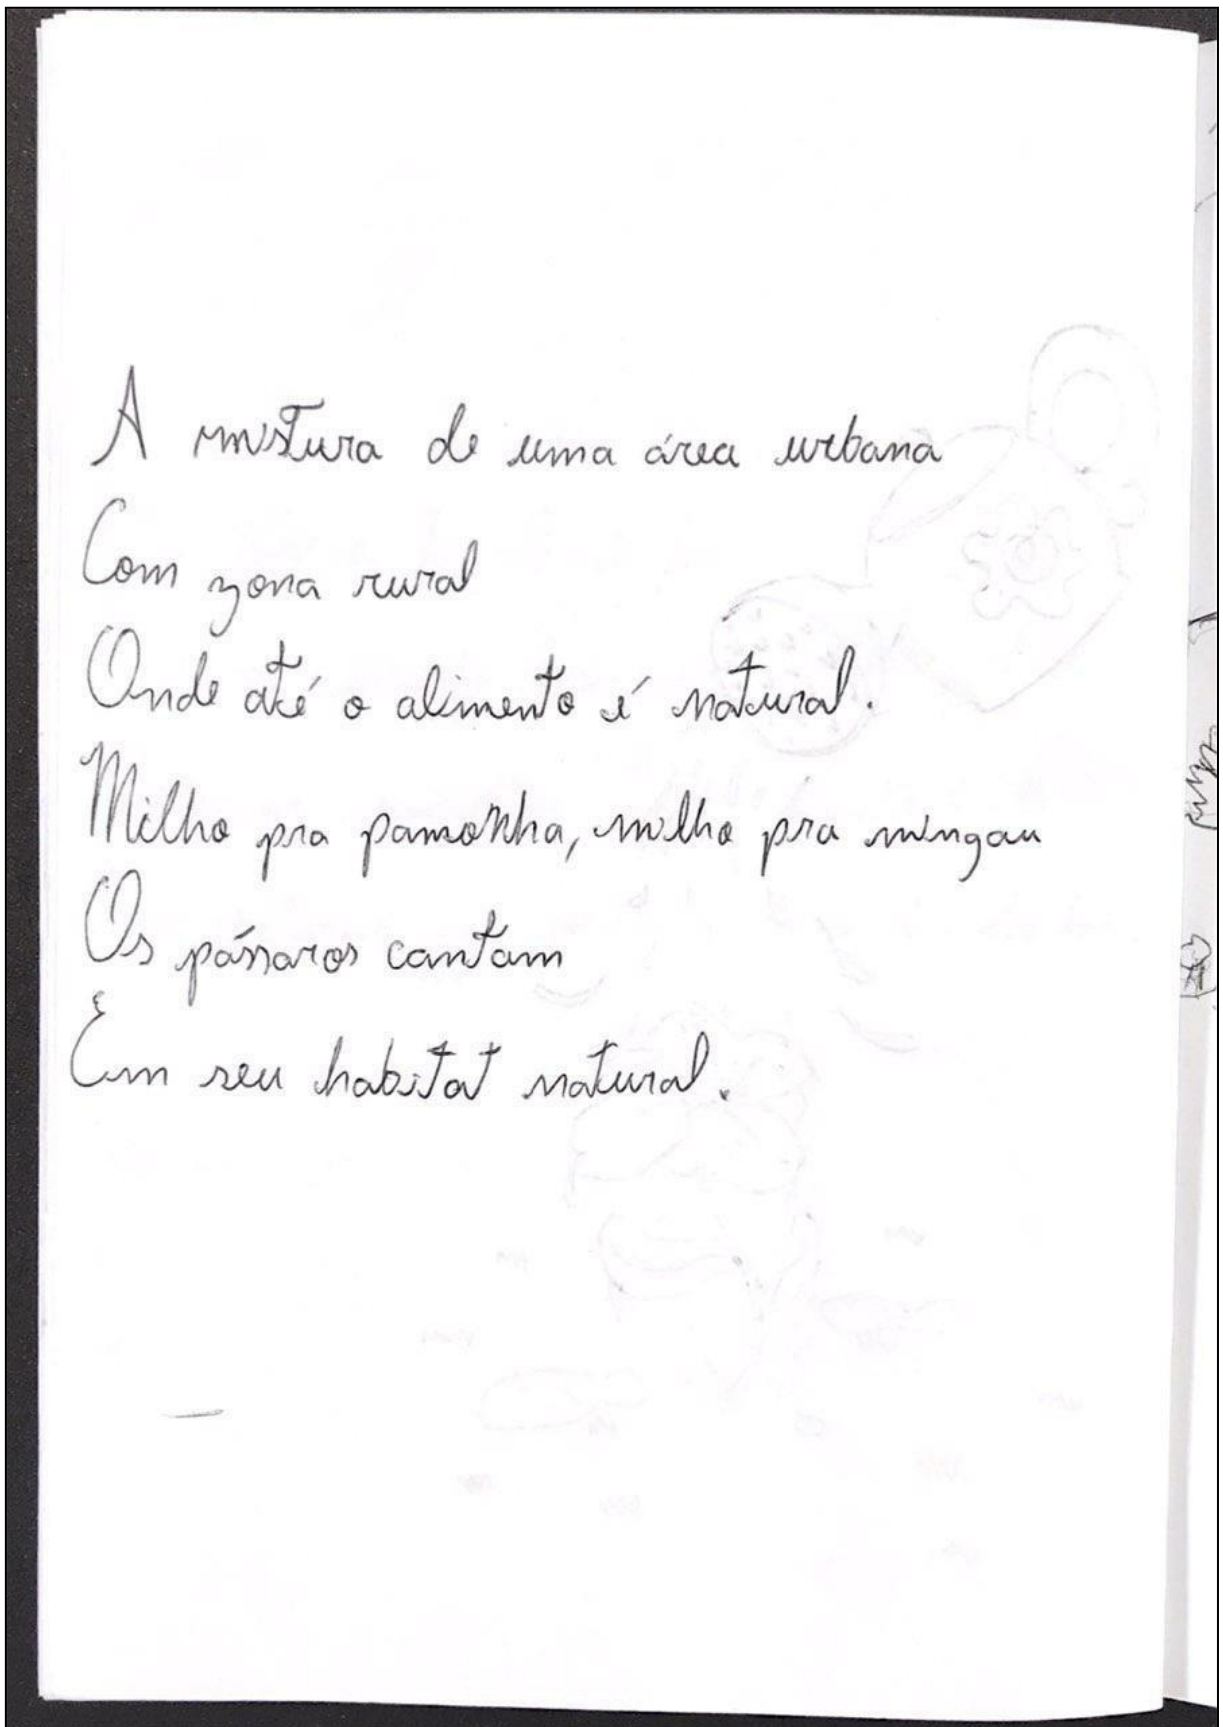 A mistura de uma área urbana
Com zona rural
Onde até o alimento é natural.
Milho pra pamonha, milho pra mingau
Os pássaros cantam
Em seu habitat natural.